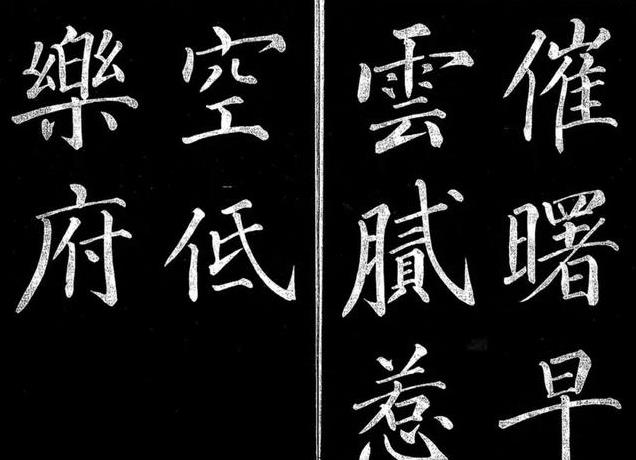 催曙早
雲膩惹
空低
樂府